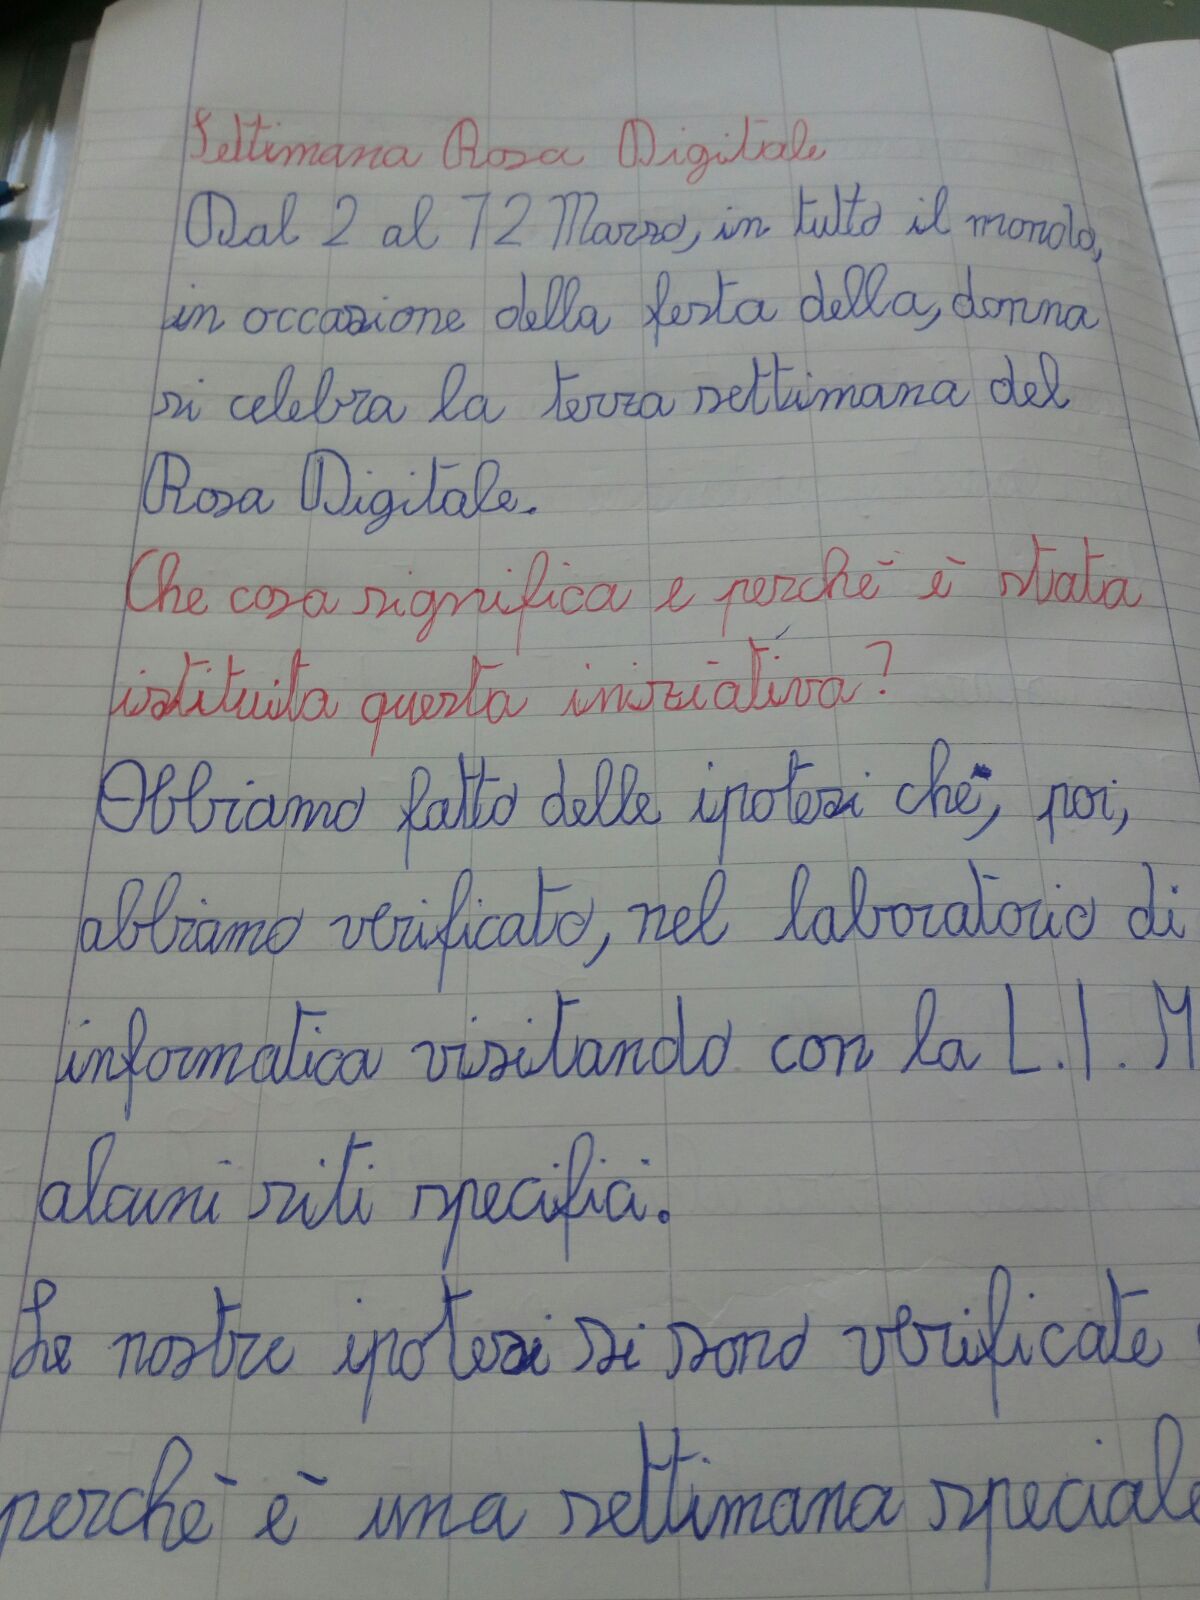 Settimana Rosa Digitale
Dal 2 al 12 Marzo, in tutto il mondo,
in occasione della festa della, donna
si celebra la terza settimana del
Rosa Digitale.
Che cosa significa e perchè è stata
istituita questa iniziativa?
Abbiamo fatto delle ipotesi che, poi,
abbiamo verificato, nel laboratorio di
informatica visitando con la L.I.M
alcuni siti specifici.
Le nostre ipotesi si sono verificate
perchè è una settimana speciale